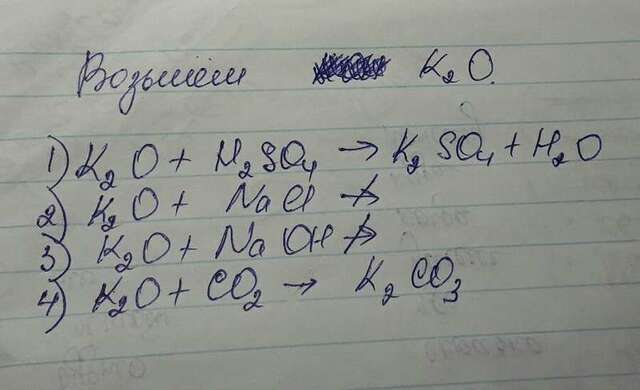 Возьмём K₂O.
1) K₂O + H₂SO₄ → K₂SO₄ + H₂O
2) K₂O + NaCl ↛
3) K₂O + NaOH ↛
4) K₂O + CO₂ → K₂CO₃